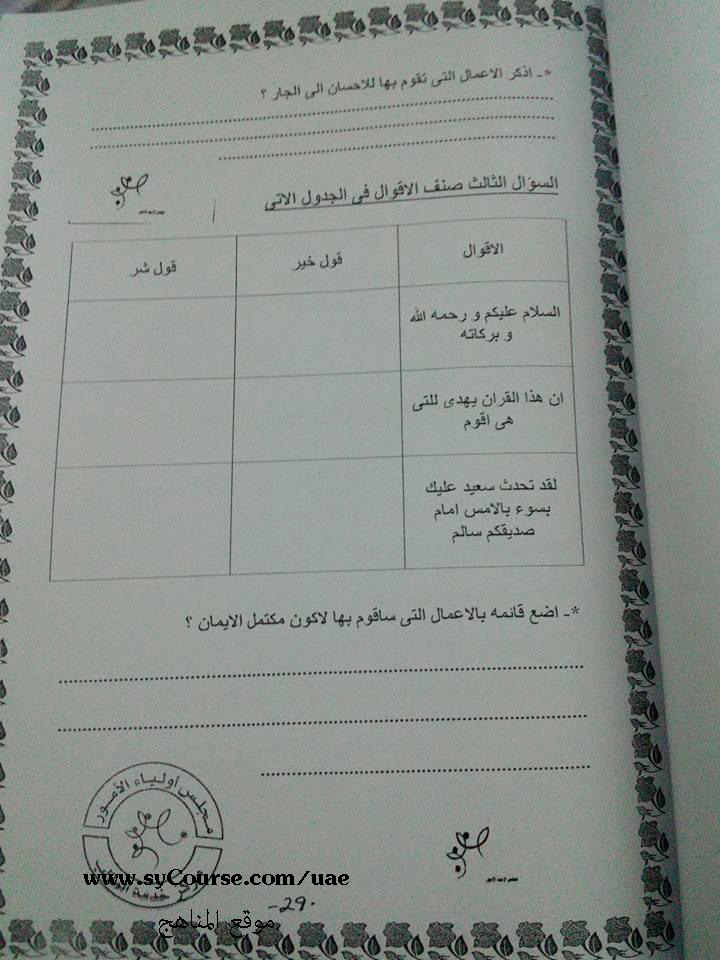 *- اذكر الاعمال التى تقوم بها للاحسان الى الجار ؟
السؤال الثالث صنف الاقوال فى الجدول الاتى
الاقوال
قول خير
قول شر
السلام عليكم و رحمه الله
و بركاته
ان هذا القران يهدى للتى
هى اقوم
لقد تحدث سعيد عليك
بسوء بالامس امام
صديقكم سالم
*- اضع قائمه بالاعمال التى ساقوم بها لاكون مكتمل الايمان ؟
مجلس أولياء الأمور
www.syCourse.com/uae
-29-
موقع المناهج